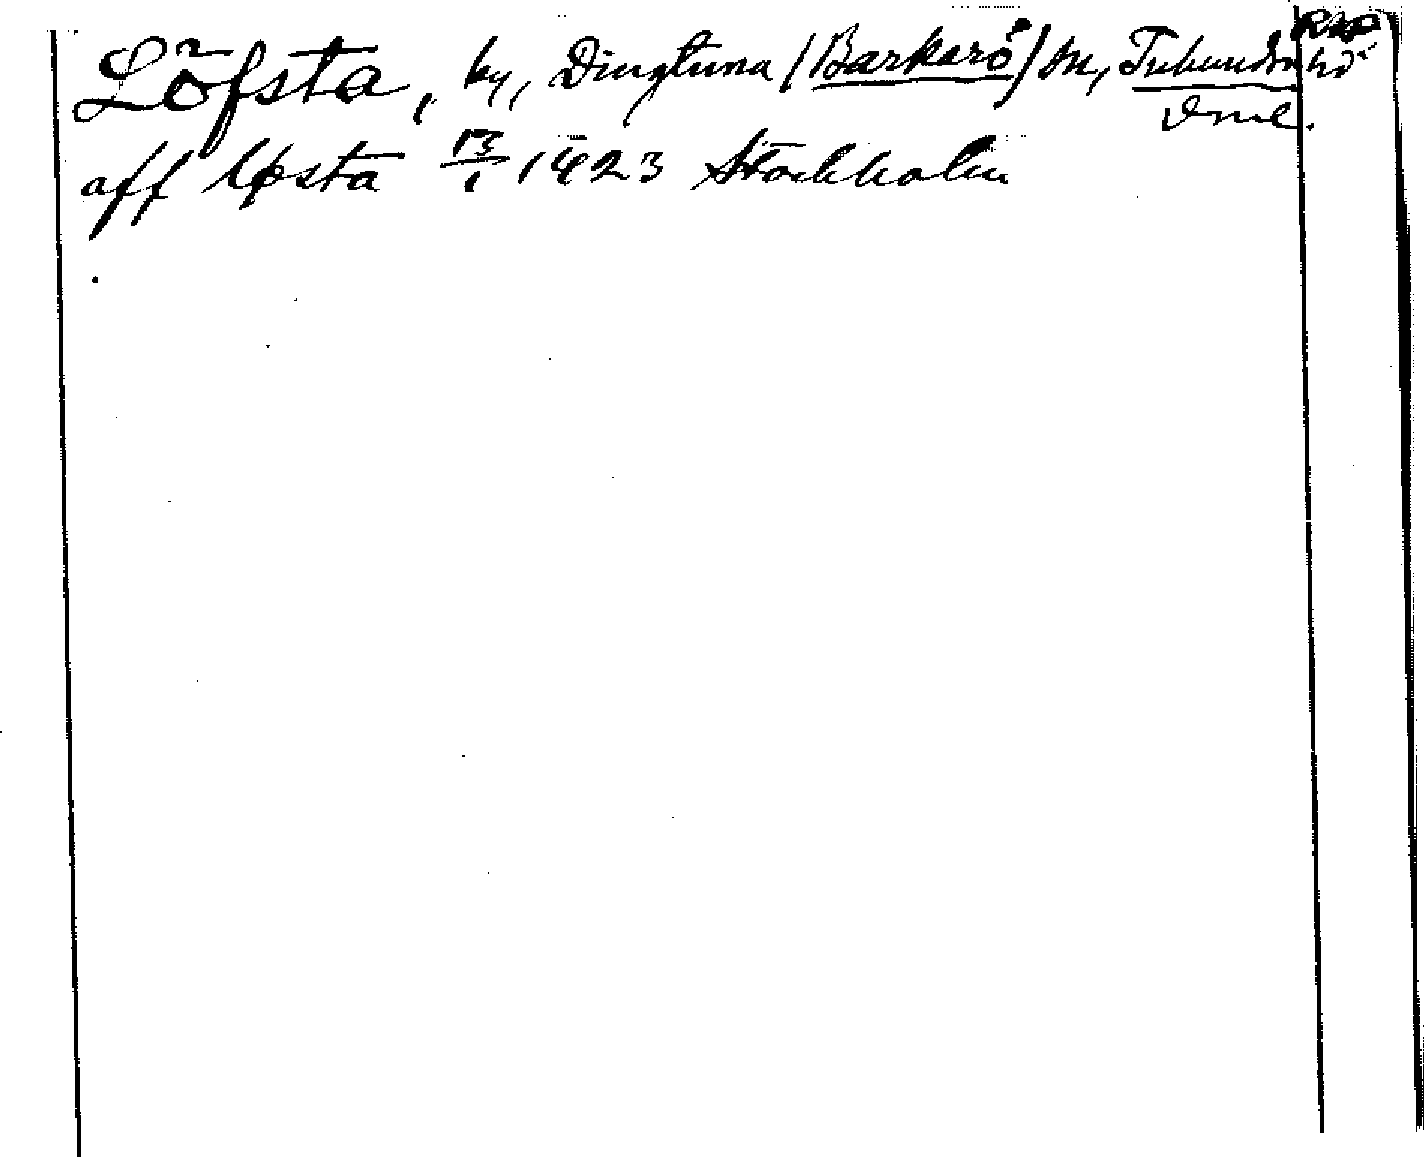 Löfsta, by, Dingtuna (Barkarö) sn, Tuhundra hd
Vml.
aff løsta 13/1 1423 Stockholm